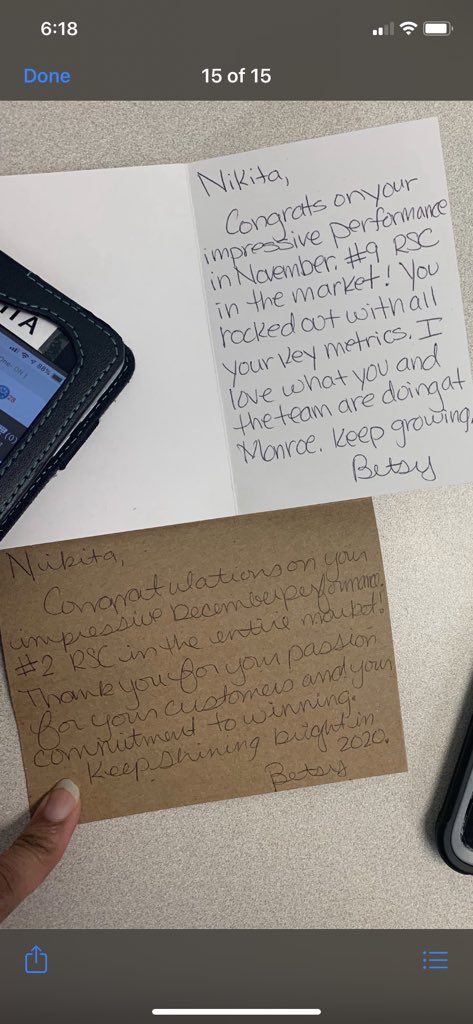 6:18
Done
15 of 15
Nikita,
Congrats on your
impressive performance
in November. #9 RSC
in the market! You
rocked out with all
your key metrics. I
love what you and
the team are doing at
Monroe. Keep growing,
Betsy
88%
Nikita,
Congratulations on your
impressive December performance.
#2 RSC in the entire market!
Thank you for your passion
for your customers and your
commitment to winning.
Keep shining bright in
2020.
Betsy